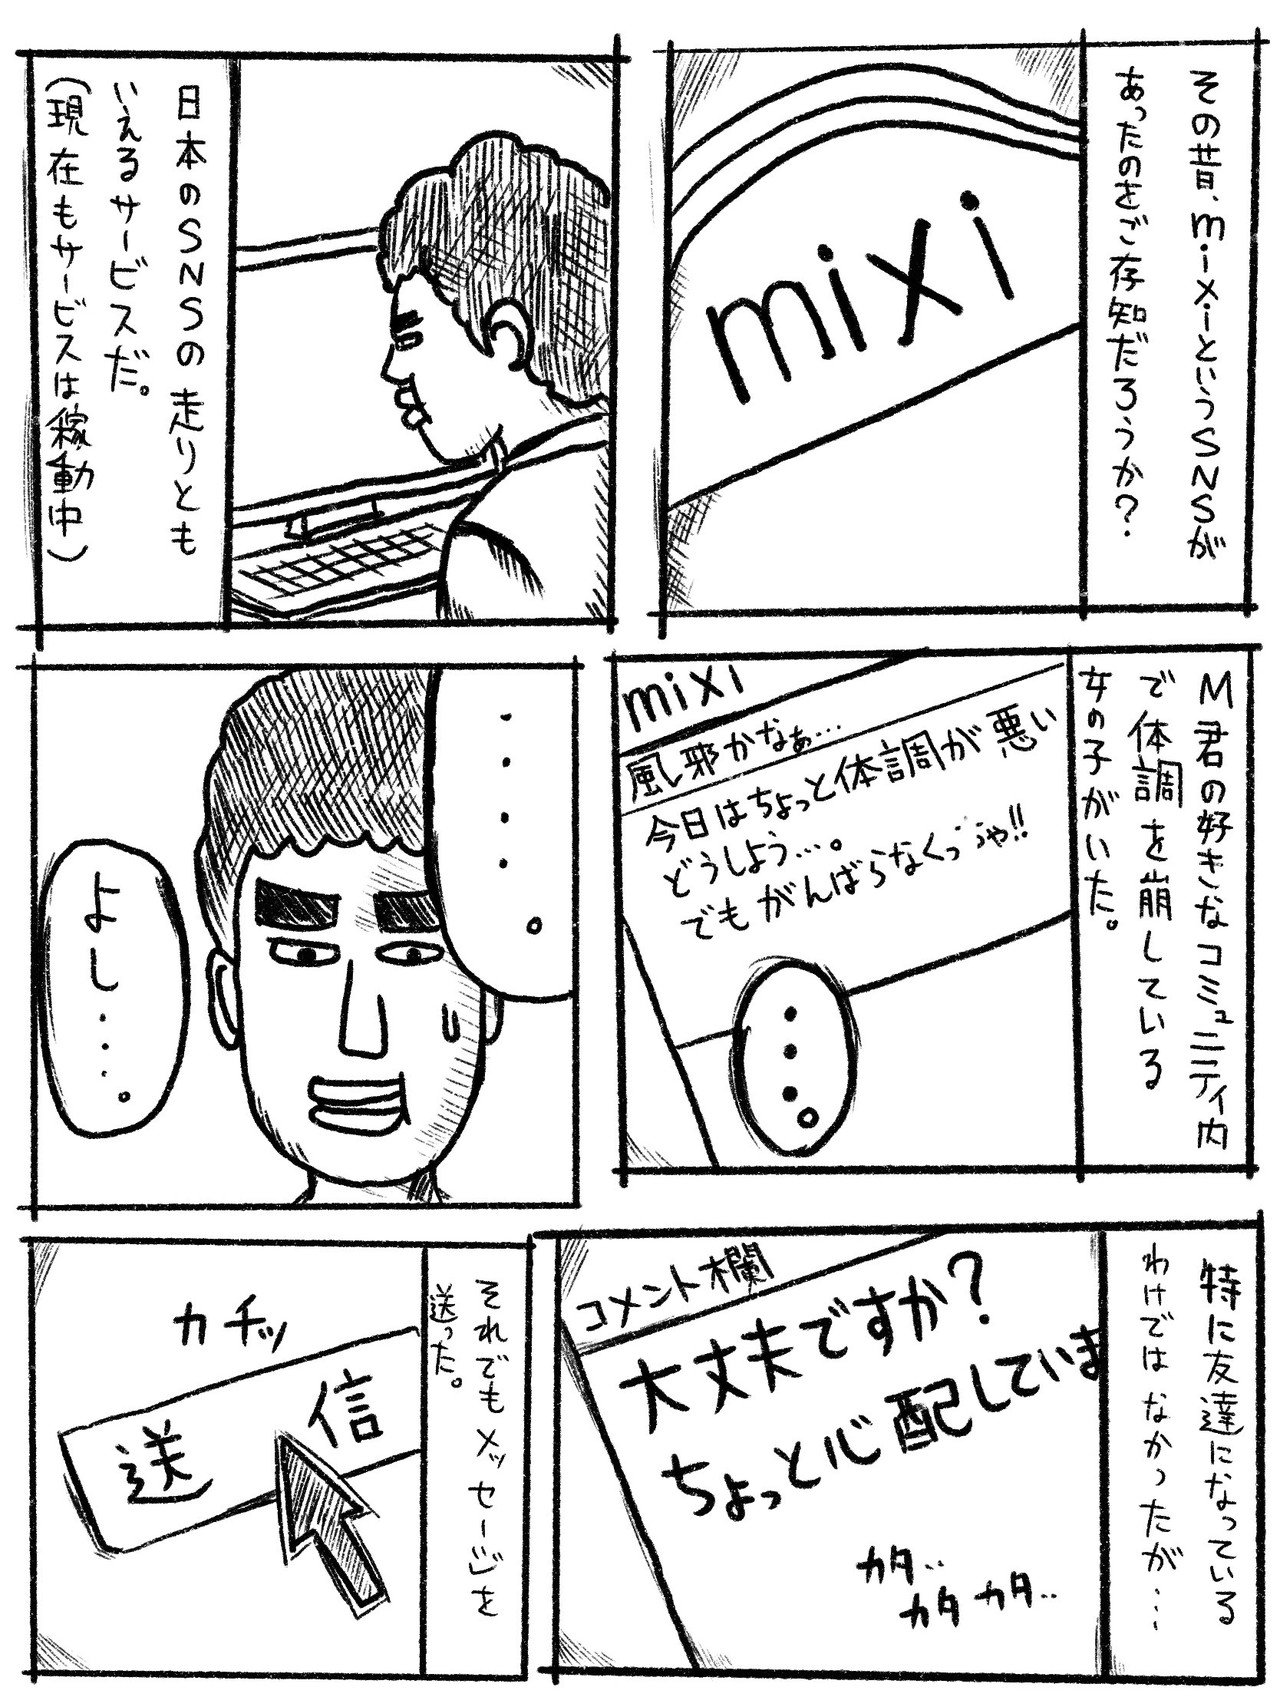 その昔、mixiというSNSが
あったのをご存知だろうか?
mixi
日本のSNSの走りとも
いえるサービスだ。
(現在もサービスは稼動中)
M君の好きなコミュニティ内
で体調を崩している
女の子がいた。
mixi
風邪かなぁ…
今日はちょっと体調が悪い
どうしよう…。
でもがんばらなくっちゃ!!
・・・。
・・・・。
よし・・・。
特に友達になっている
わけではなかったが…
コメント欄
大丈夫ですか?
ちょっと心配していま
カタ‥
カタカタ‥
それでもメッセージを
送った。
カチッ
送信